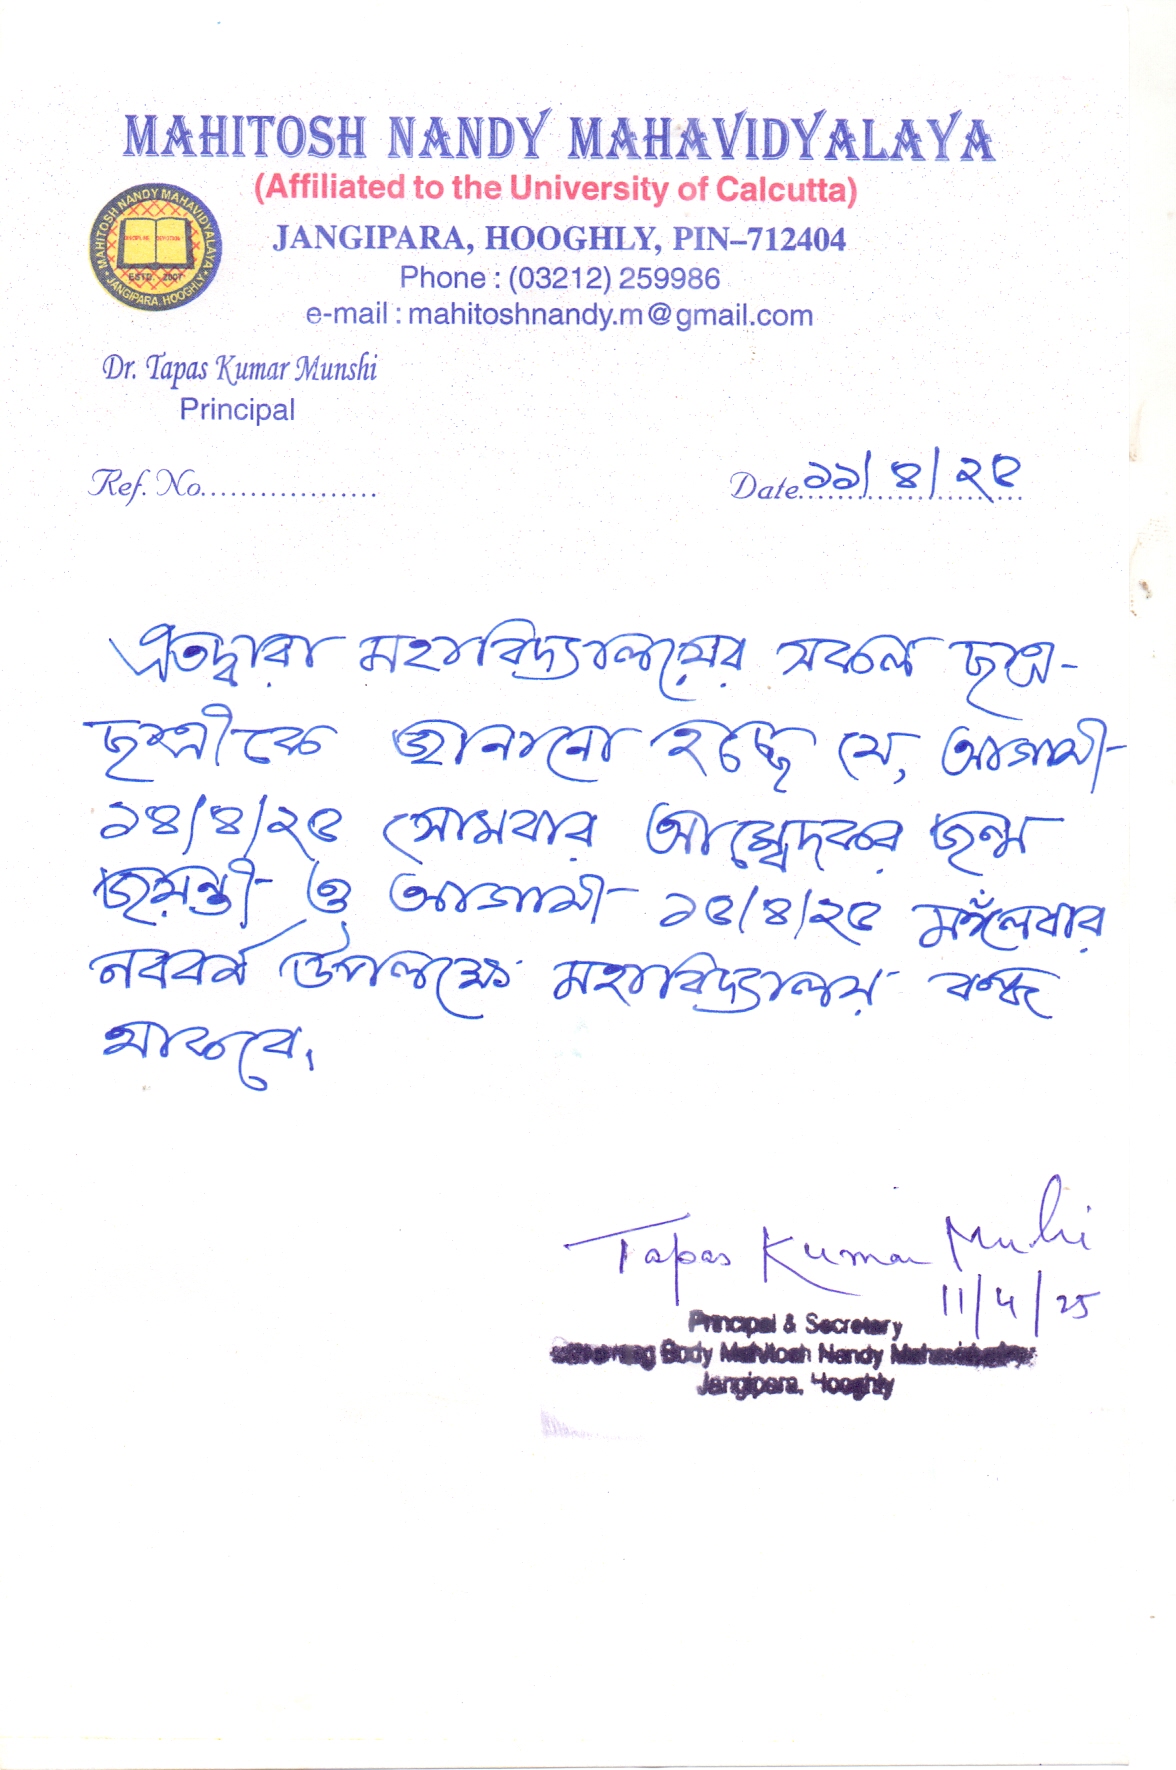 MAHITOSH NANDY MAHAVIDYALAYA
(Affiliated to the University of Calcutta)
JANGIPARA, HOOGHLY, PIN–712404
Phone : (03212) 259986
e-mail : mahitoshnandy.m@gmail.com
MAHITOSH NANDY MAHAVIDYALAYA
DISCIPLINE DEVOTION
ESTD. 2007
JANGIPARA, HOOGHLY
Dr. Tapas Kumar Munshi
Principal
Ref. No..................
Date ১১/৪/২৫
এতদ্বারা মহাবিদ্যালয়ের সকল ছাত্র-
ছাত্রীকে জানানো হচ্ছে যে, আগামী
১৪/৪/২৫ সোমবার আম্বেদকর জন্ম
জয়ন্তী ও আগামী ১৫/৪/২৫ মঙ্গলবার
নববর্ষ উপলক্ষে মহাবিদ্যালয় বন্ধ
থাকবে।
Tapas Kumar Munshi
11/4/25
Principal & Secretary
Body Mahitosh Nandy Mahavidyalay
Jangipara, Hooghly